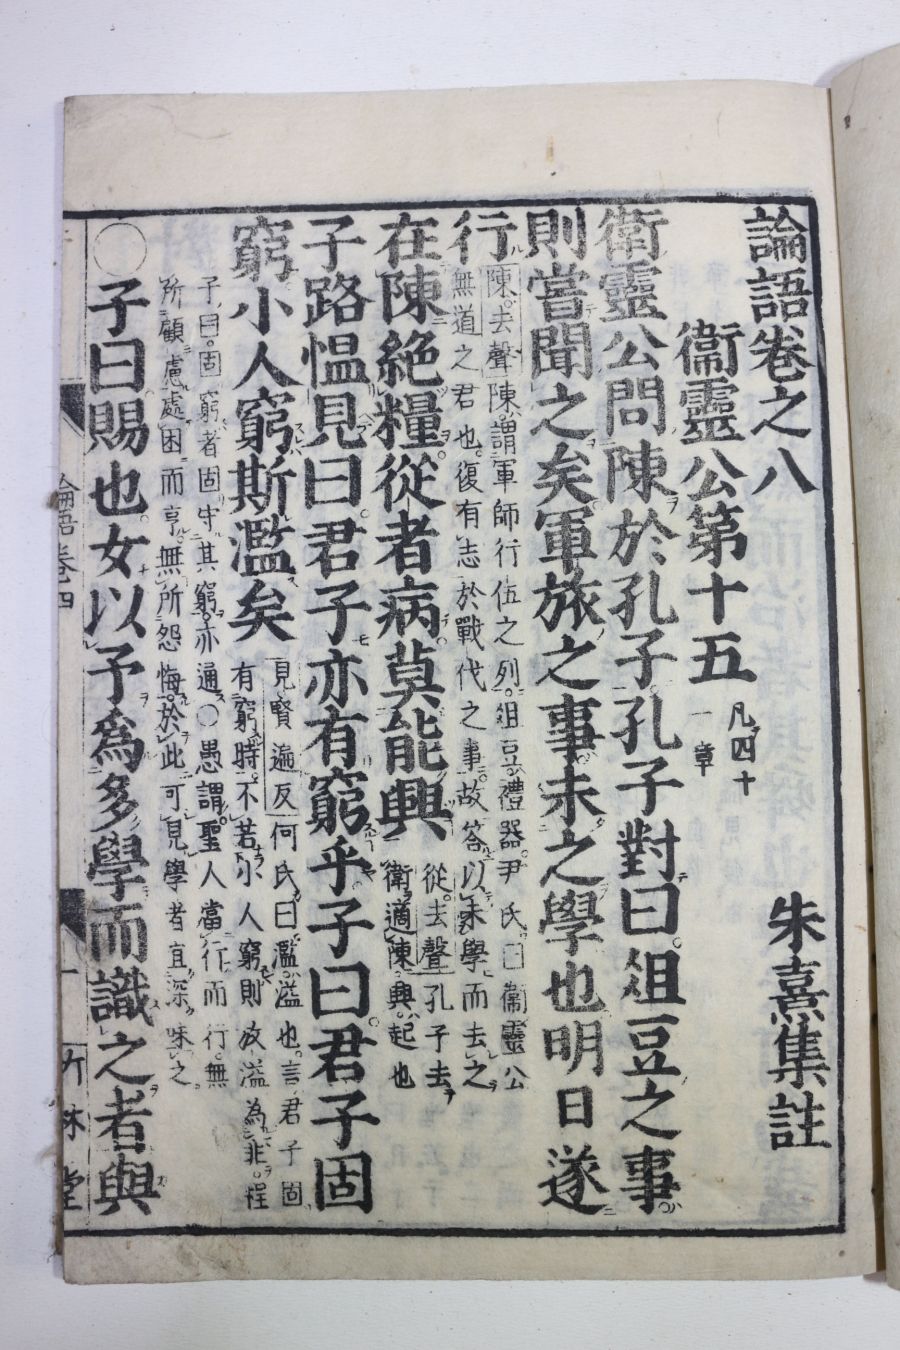 論語卷之八
朱熹集註
衞靈公第十五
凡四十
一章
衛靈公問陳於孔子孔子對曰俎豆之事
則嘗聞之矣軍旅之事未之學也明日遂
行
陳去聲陳謂軍師行伍之列俎豆禮器尹氏曰衞靈公
無道之君也復有志於戰伐之事故答以未學而去之
在陳絶糧從者病莫能興
從去聲孔子去
衛適陳興起也
子路慍見曰君子亦有窮乎子曰君子固
窮小人窮斯濫矣
見賢遍反何氏曰濫溢也言君子固
有窮時不若小人窮則放溢為非程
子曰固窮者固守其窮亦通○愚謂聖人當行而行無
所顧慮處困而亨無所怨悔於此可見學者宜深味之
○子曰賜也女以予爲多學而識之者與
論語卷四
竹林堂